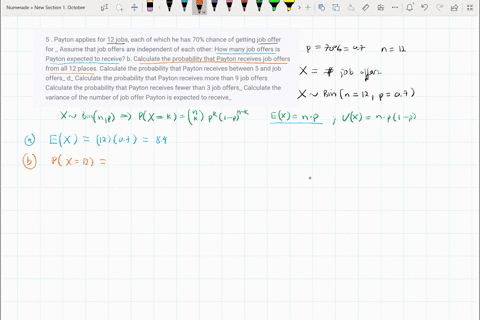 Numerade » New Section 1. October
5 . Payton applies for 12 jobs, each of which he has 70% chance of getting job offer
for _ Assume that job offers are independent of each other: How many job offers is
Payton expected to receive? b. Calculate the probability that Payton receives job offers
from all 12 places. Calculate the probability that Payton receives between 5 and job
offers_ d_ Calculate the probability that Payton receives more than 9 job offers
Calculate the probability that Payton receives fewer than 3 job offers_ Calculate the
variance of the number of job offer Payton is expected to receive_
p = 70% = 0.7 n = 12
X = # job offers
X ~ Bin(n = 12, p = 0.7)
X ~ Bin(n,p) ⇒ P(X = k) = (n k) p^k (1-p)^n-k E(X) = n·p ; V(X) = n·p(1-p)
(a) E(X) = (12)(0.7) = 84
(b) P(X = 12) =